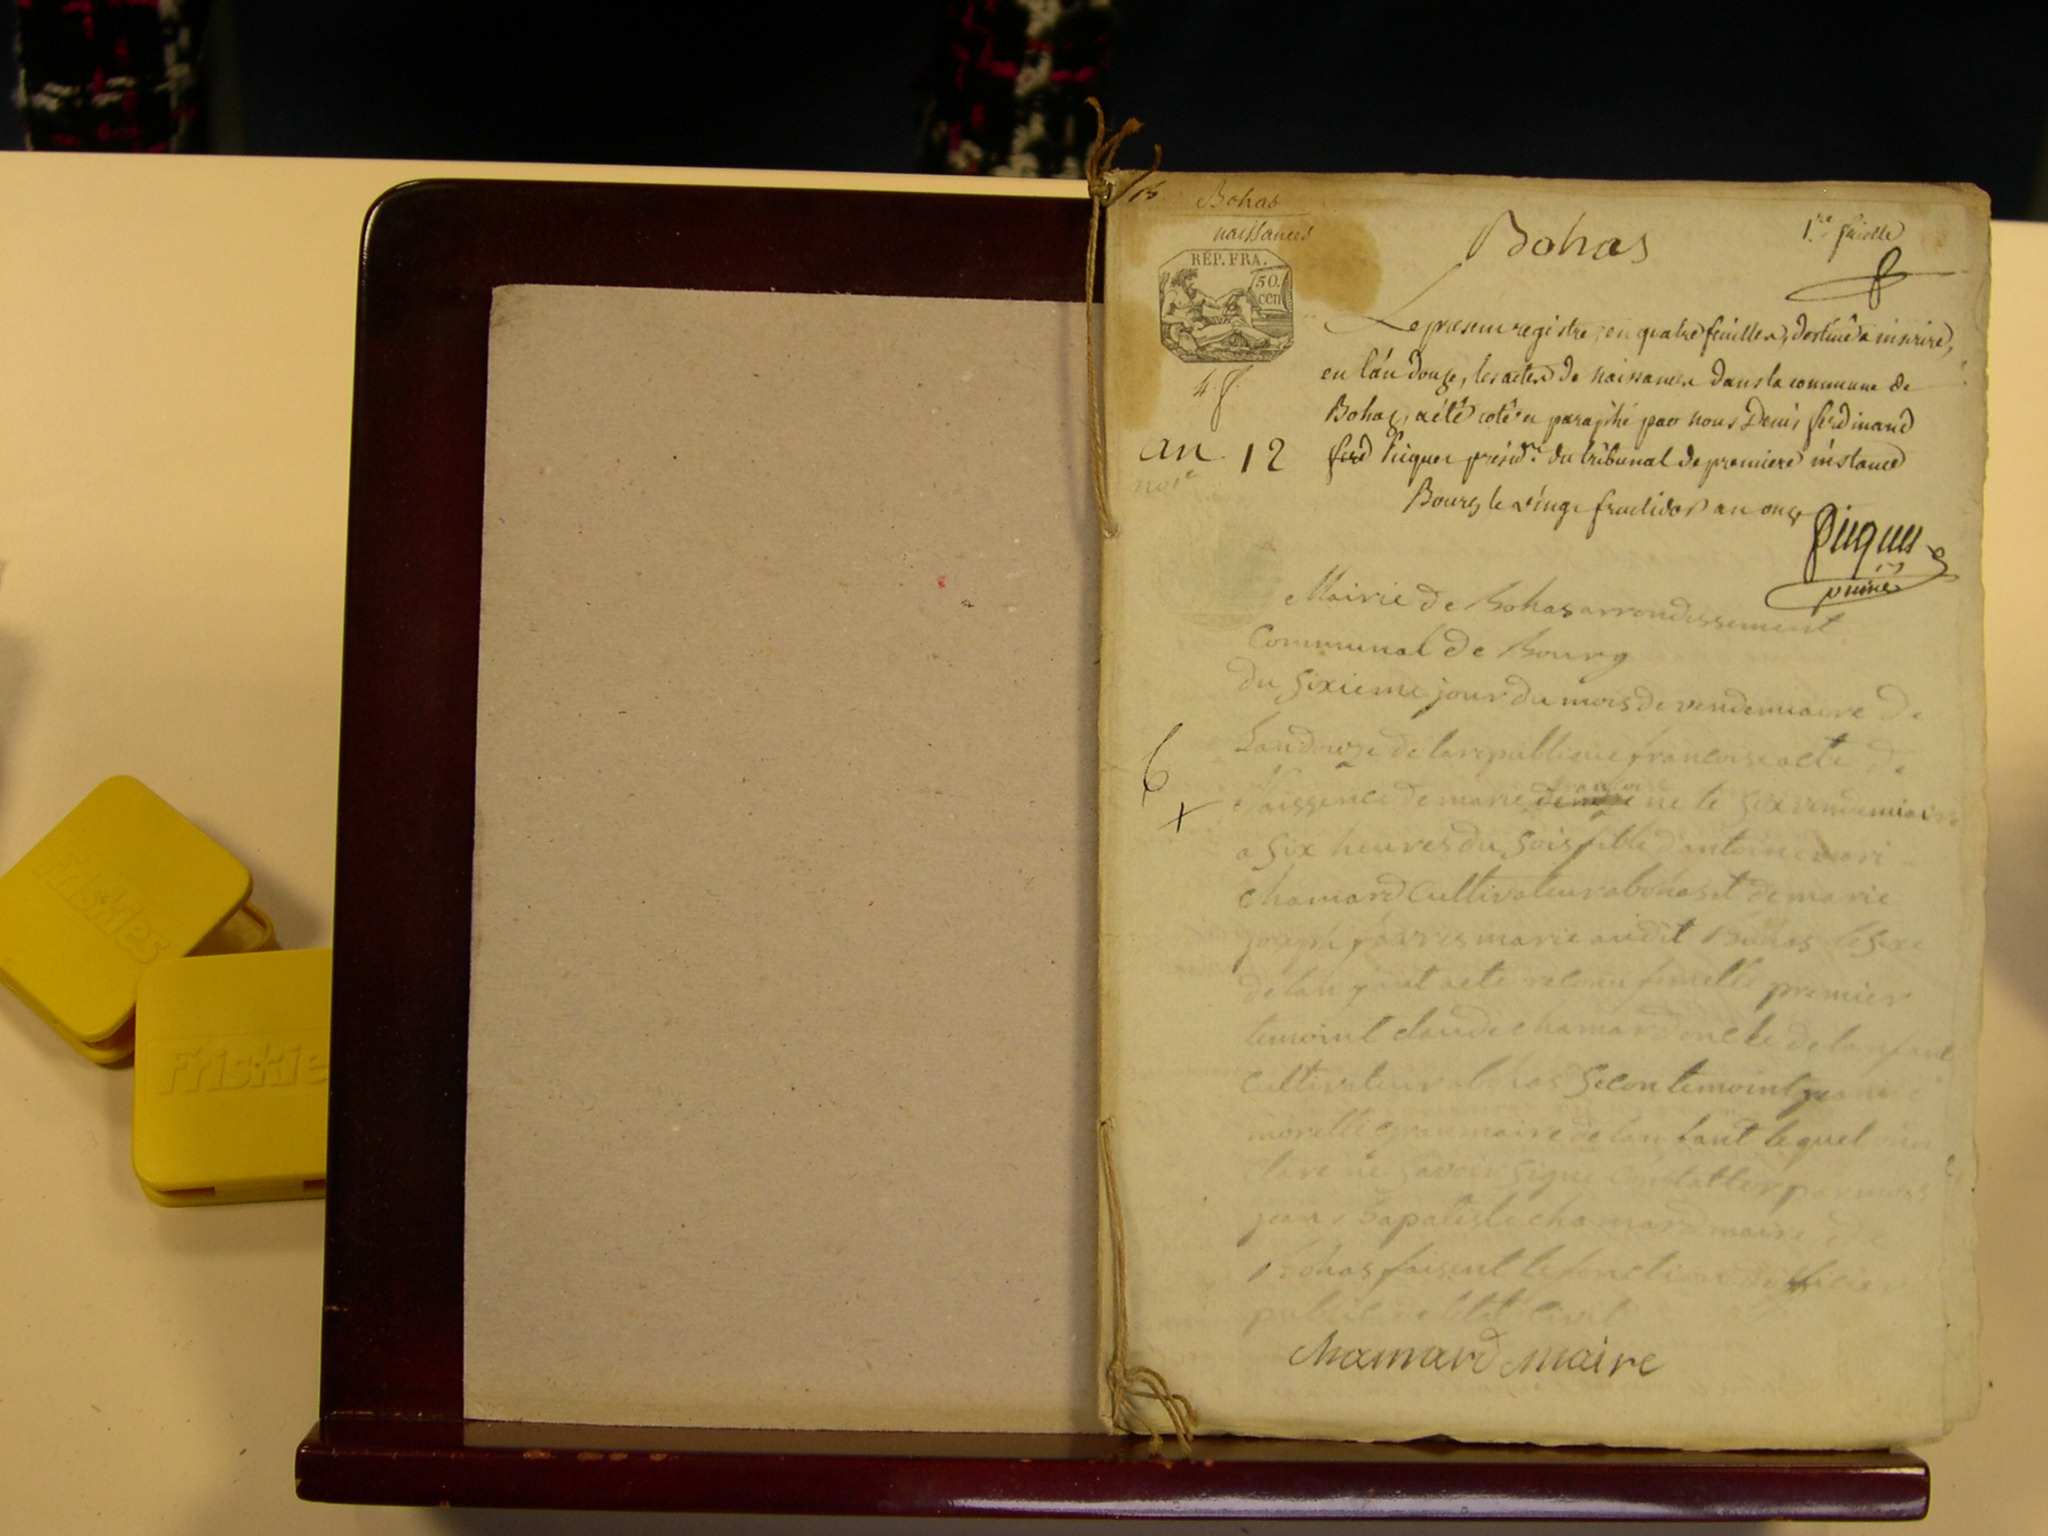 Friskies
Friskie
15
Bohas
naissances
REP. FRA.
50.
cen
4 f.
an 12
Bohas
1.re feuille
Le present registre, en quatre feuilles, destiné a inscrire,
en l'an douze, les actes de naissance dans la commune de
Bohas, a été coté et paraphé par nous Denis ferdinand
ferd Picquet présid.t du tribunal de premiere instance
Bourg le vingt fructidor an onze
Picquet
Mairie de Bohas arrondissement
Communal de Bourg
du sixieme jour du mois de vendemiaire de
Landouze de la republique francoise acte de
Naissence de marie ne le six vendemiaire
a six heures du soir fille d'antoine mari
chamard cultivateur a bohas et de marie
joseph favres marie audit Bohas le sexe
de lanfant aete reconu femelle premier
temoint claude chamard oncle de lanfant
cultivateur a bohas Secon temoint
morelle granmaire de lanfant lequel
clare ne savoir signe Constatter par mois
jean Bapatiste chamard maire de
Bohas faisent le fonction
public de letat civil
Chamard Maire
6
+